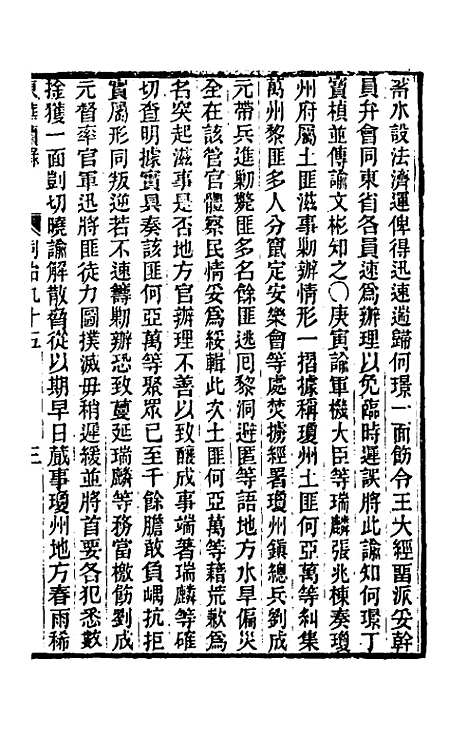 蓄水設法濟運俾得迅速遄歸何璟一面飭令王大經畱派妥幹
員弁會同東省各員速為辦理以免臨時遲誤將此諭知何璟丁
寶楨並傳諭文彬知之〇庚寅諭軍機大臣等瑞麟張兆棟奏瓊
州府屬土匪滋事勦辦情形一摺據稱瓊州土匪何亞萬等糾集
萬州黎匪多人分竄定安樂會等處焚擄經署瓊州鎮總兵劉成
元帶兵進勦斃匪多名餘匪逃囘黎洞避匿等語地方水旱偏災
全在該管官體察民情妥為綏輯此次土匪何亞萬等藉荒歉為
名突起滋事是否地方官辦理不善以致釀成事端著瑞麟等確
切查明據實具奏該匪何亞萬等聚眾已至千餘膽敢負嵎抗拒
實屬形同叛逆若不速籌勦辦恐致蔓延瑞麟等務當檄飭劉成
元督率官軍迅將匪徒力圖撲滅毋稍遲緩並將首要各犯悉數
捦獲一面剴切曉諭解散脅從以期早日蕆事瓊州地方春雨稀
東華續錄 同治九十五 三